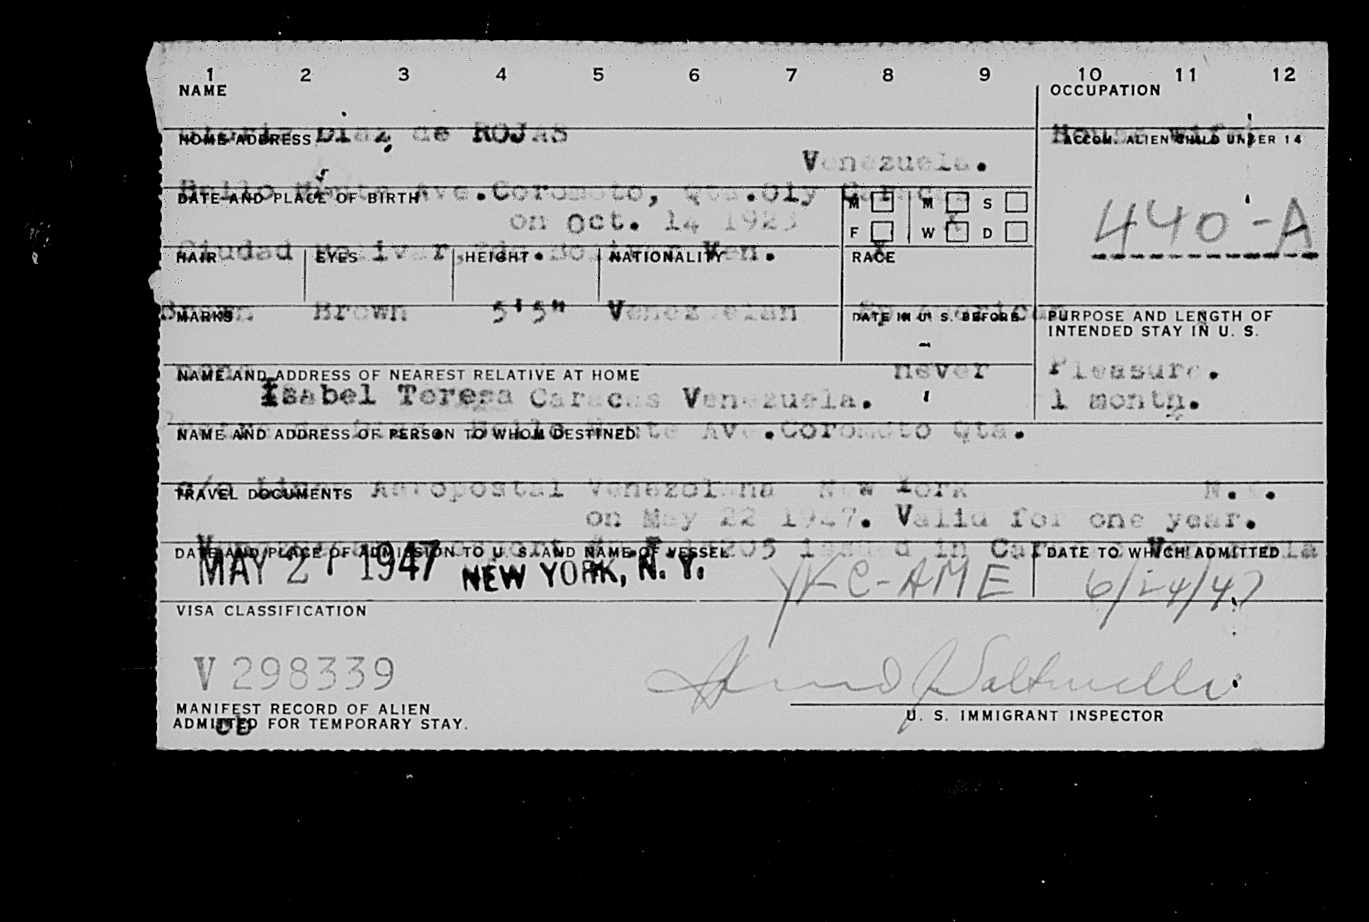 1 2 3 4 5 6 7 8 9 10 11 12
NAME OCCUPATION
Diaz de ROJAS House wife
HOME ADDRESS ACCOM. ALIEN CHILD UNDER 14
Venezuela.
Bello Monte Ave.Coromoto, Qta.Oly Caracas
DATE AND PLACE OF BIRTH M M S
on Oct. 14 1923 440-A
F W D
X
Ciudad Bolivar, Edo.Bolivar Ven.
HAIR EYES HEIGHT NATIONALITY RACE
X
Brown Brown 5'5" Venezuelan Sp American
MARKS DATE IN U. S. BEFORE PURPOSE AND LENGTH OF
INTENDED STAY IN U. S.
none never Pleasure.
NAME AND ADDRESS OF NEAREST RELATIVE AT HOME
Isabel Teresa Caracas Venezuela. 1 month.
Bello Monte Ave.Coromoto Qta.
NAME AND ADDRESS OF PERSON TO WHOM DESTINED
c/o Linea Aeropostal Venezolana New York N.Y.
TRAVEL DOCUMENTS
on May 22 1947. Valid for one year.
issued in Caracas Venezuela
DATE AND PLACE OF ADMISSION TO U. S. AND NAME OF VESSEL DATE TO WHICH ADMITTED
MAY 27 1947 NEW YORK, N. Y. YV-C-AME 6/24/47
VISA CLASSIFICATION
V 298339
MANIFEST RECORD OF ALIEN
ADMITTED FOR TEMPORARY STAY.
U. S. IMMIGRANT INSPECTOR